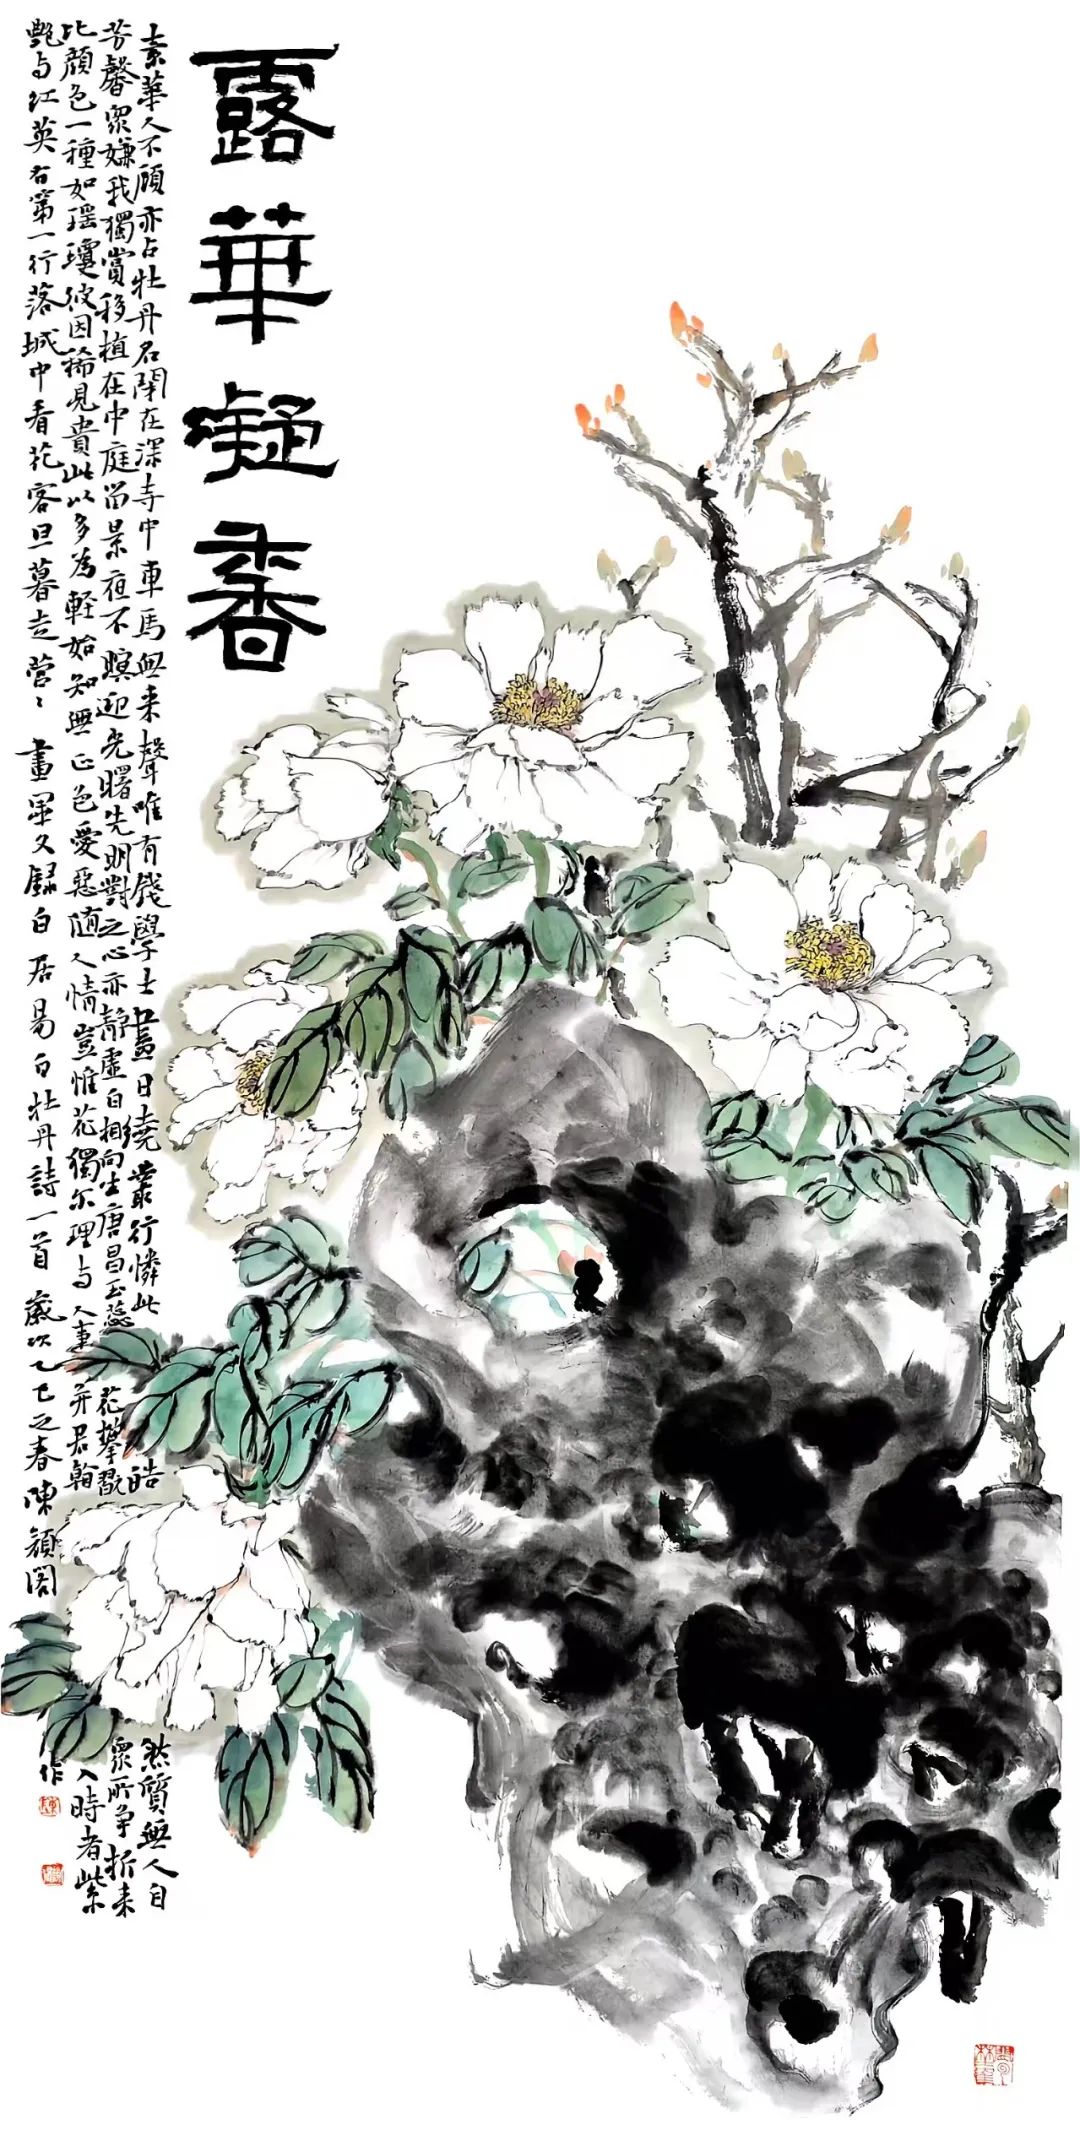 露華凝香
素華人不顧亦占牡丹名閉在深寺中車馬無来聲唯有錢學士盡日遶叢行憐此皓然質無人自
芳馨眾嫌我獨賞移植在中庭留景夜不暝迎光曙先明對之心亦靜虛白相向生唐昌玉蕊花攀翫眾所爭折来
比顏色一種如瑶瓊彼因稀見貴此以多為輕始知無正色愛惡随人情豈惟花獨尔理与人事并君看入時者紫
艷与紅英右第一行落城中看花客旦暮走營〻畫畢又録白居易白牡丹詩一首歲次乙巳之春陳作